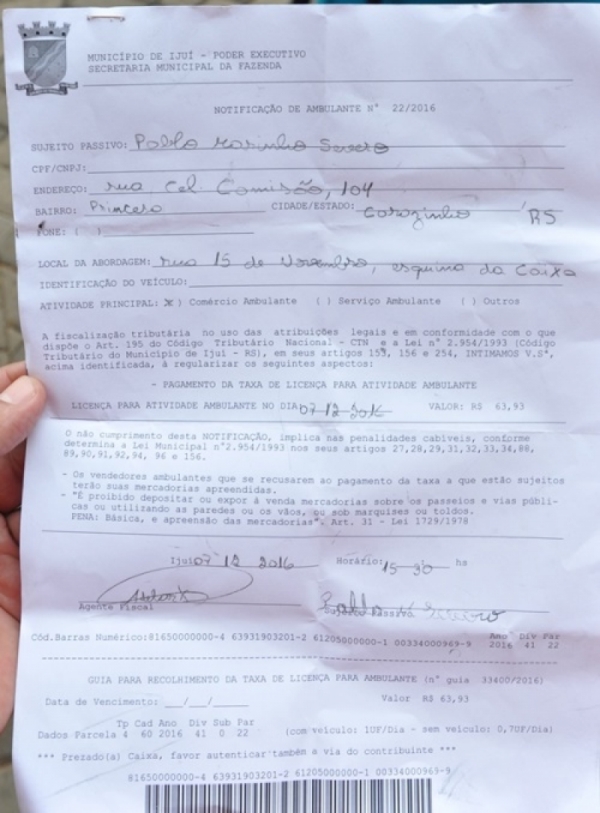 MUNICÍPIO DE IJUÍ - PODER EXECUTIVO
SECRETARIA MUNICIPAL DA FAZENDA
NOTIFICAÇÃO DE AMBULANTE N° 22/2016
SUJEITO PASSIVO: Pablo Marinho Severo
CPF/CNPJ:
ENDEREÇO: rua Cel. Camisão, 104
BAIRRO: Princesa CIDADE/ESTADO: Carazinho RS
FONE: ( )
LOCAL DA ABORDAGEM: rua 15 de Novembro, esquina da Caixa
IDENTIFICAÇÃO DO VEÍCULO:
ATIVIDADE PRINCIPAL: (X) Comércio Ambulante ( ) Serviço Ambulante ( ) Outros
A fiscalização tributária no uso das atribuições legais e em conformidade com o que
dispõe o Art. 195 do Código Tributário Nacional - CTN e a Lei n° 2.954/1993 (Código
Tributário do Município de Ijuí - RS), em seus artigos 153, 156 e 254, INTIMAMOS V.Sª,
acima identificada, à regularizar os seguintes aspectos:
- PAGAMENTO DA TAXA DE LICENÇA PARA ATIVIDADE AMBULANTE
LICENÇA PARA ATIVIDADE AMBULANTE NO DIA 07-12-2016 VALOR: R$ 63,93
O não cumprimento desta NOTIFICAÇÃO, implica nas penalidades cabíveis, conforme
determina a Lei Municipal n°2.954/1993 nos seus artigos 27,28,29,31,32,33,34,88,
89,90,91,92,94, 96 e 156.
- Os vendedores ambulantes que se recusarem ao pagamento da taxa a que estão sujeitos
terão suas mercadorias apreendidas.
- "É proibido depositar ou expor à venda mercadorias sobre os passeios e vias públi-
cas ou utilizando as paredes ou os vãos, ou sob marquises ou toldos.
PENA: Básica, e apreensão das mercadorias". Art. 31 - Lei 1729/1978
Ijuí 07 12 2016 Horário: 15 30 hs
Agente Fiscal Sujeito Passivo
Cód.Barras Numérico:81650000000-4 63931903201-2 61205000000-1 00334000969-9
Ano Div Par
2016 41 22
GUIA PARA RECOLHIMENTO DA TAXA DE LICENÇA PARA AMBULANTE (n° guia 33400/2016)
Data de Vencimento: __/__/____ Valor R$ 63,93
Tp Cad Ano Div Sub Par
Dados Parcela 4 60 2016 41 0 22 (com veículo: 1UF/Dia - sem veículo: 0,7UF/Dia)
*** Prezado(a) Caixa, favor autenticar também a via do contribuinte ***
81650000000-4 63931903201-2 61205000000-1 00334000969-9